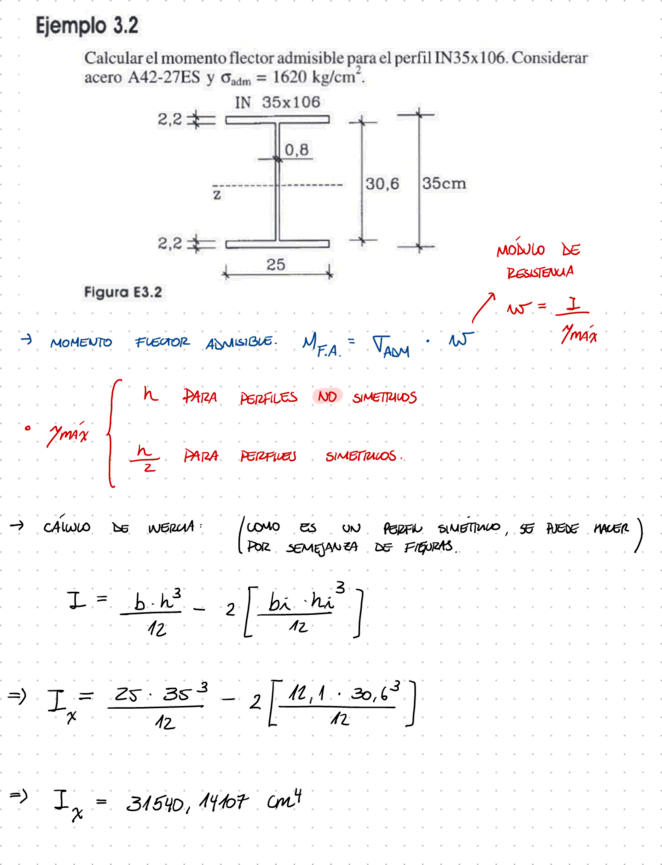 Ejemplo 3.2
Calcular el momento flector admisible para el perfil IN35x106. Considerar
acero A42-27ES y σadm = 1620 kg/cm².
IN 35x106
2,2
0,8
z
30,6
35cm
2,2
25
Figura E3.2
MÓDULO DE
RESISTENCIA
W = I / ymáx
→ MOMENTO FLECTOR ADMISIBLE. M_F.A. = σ_ADM · W
• ymáx { h PARA PERFILES NO SIMETRICOS
h/2 PARA PERFILES SIMETRICOS.
→ CÁLCULO DE INERCIA: (COMO ES UN PERFIL SIMÉTRICO, SE PUEDE HACER
POR SEMEJANZA DE FIGURAS.)
I = b·h³/12 - 2[bi·hi³/12]
⇒ Ix = 25·35³/12 - 2[12,1·30,6³/12]
⇒ Ix = 31540,14107 cm⁴